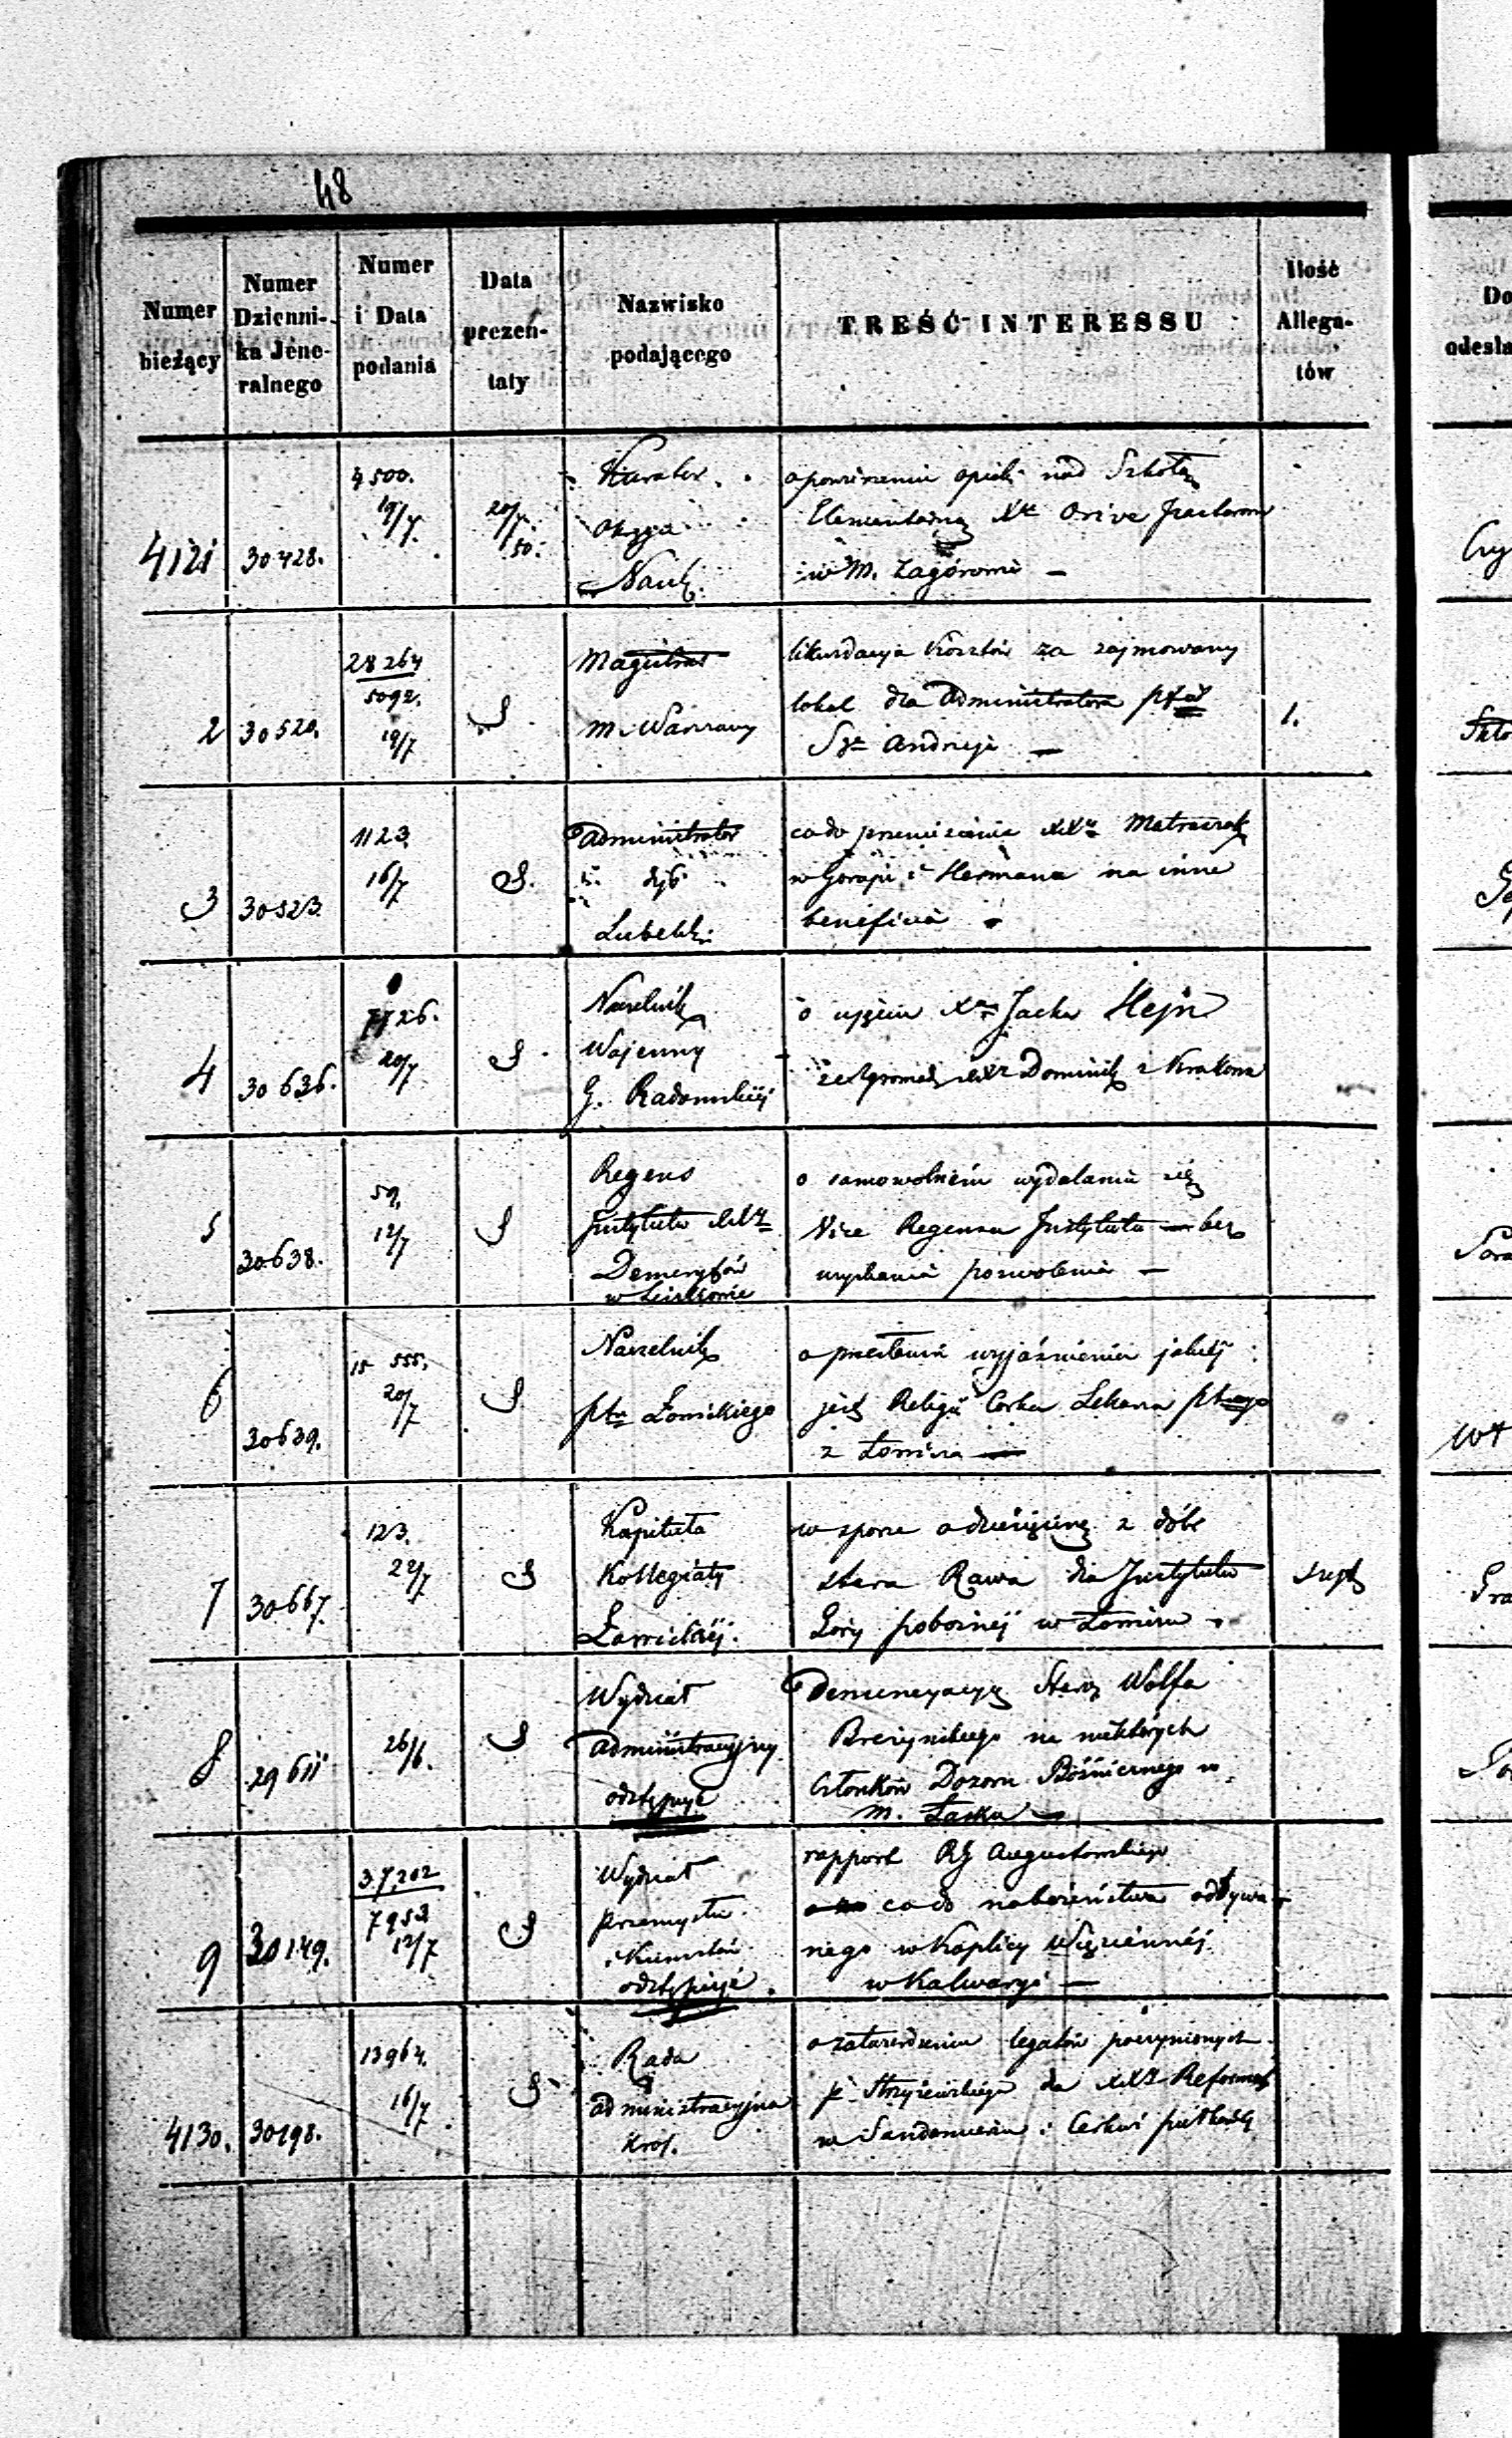 48
Numer bieżący
Numer Dzienni- ka Jene- ralnego
Numer i Data podania
Data prezen- taty
Nazwisko podającego
TREŚĆ INTERESSU
Ilość Allega- tów
Do
odesła
4121
30428.
4500.
19/7.
20/7. 50.
Kurator
Okręgu
Nauk.
o powierzeniu opieki nad Szkołą
Elementarną Xu
w M. Zagórowie —
2
30520.
28264
5092.
19/7
S
Magistrat
m. Warszawy
likwidacyja kosztów za zajmowany
lokal dla Administratora
Sgo Andrzeja —
1.
3
30523.
1123.
16/7
S.
Administrator
Dyć.
Lubelski
co do przeniesienia XXy
w Goraju i Hermana na inne
beneficia
4
30636.
7726.
20/7
S
Naczelnik
Wojenny
G. Radomskiej
o ujęciu Xa Jacka Hejn
ze Zgromad. XXy Dominik z Krakowa
5
30638.
59.
12/7
S
Regens
Instytutu XXy
Demerytów
w
o samowolnem wydalaniu się
Vice Regensa Instytutu — bez
uzyskania pozwolenia —
6
30639.
15 555.
20/7
S
Naczelnik
ptu Łowickiego
o przesłanie wyjaśnienia jakiej
jest Religii Corka Lekarza
z Łowicza —
7
30667.
123.
22/7
S
Kapituła
Kollegiaty
Łowickiej.
w sporze o dziesięcinę z dóbr
Stara Rawa dla Instytutu
Góry pobożnej w Łowiczu
8
29611
26/6.
S
Wydział
Administracyjny
odstępuje
Denuncyacyę Staroz. Wolfa
Brezynskiego na niektórych
Członków Dozoru Bóżniczego w
m. Łasku —
9
30149.
37,202
7953
12/7
S
Wydział
Przemysłu
i Kunsztów
odstępuje.
rapport RG Augustowskiego
co do nabożeństwa odbywa-
nego w Kaplicy Więziennéj
w Kalwaryi —
4130.
30198.
13964.
16/7
S
Rada
administracyjna
Król.
o zatwierdzeniu legatów poczynionych
p. Stryjewskiego dla XXy Reformat
w Sandomierzu i